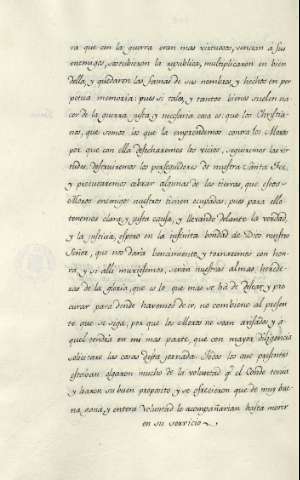 ra que en la guerra eran mas virtuosos, vencian á sus
enemigos, sostubieron la republica, multiplicaron en bien
della, y quedaron las famas de sus nombres, y hechos en per
petua memoria: pues si tales, y tantos bienes suelen na
cer de la guerra, justa y necesaria cosa es que los Christia
nos, que somos los que la emprendemos contra los Moros
por que con ella desecharemos los vicios, seguiremos las vir
tudes, destruiremos los perseguidores de nuestra Santa Fee,
y procuraremos cobrar algunas de las tierras, que estos
Moros enemigos nuestros tienen ocupadas, pues para ello
tenemos clara y justa causa, y llevando delante la verdad,
y la justicia, espero en la infinita bondad de Dios nuestro
Señor, que nos dará vencimiento, y tornaremos con hon
ra, y si alli murieremos, serán nuestras almas herede
ras de la gloria, que es lo que mas se há de desear, y pro
curar para donde havemos de ir, no combiene al presen
te que se sepa, por que los Moros no sean avisados, y á
quel tendrá en mi mas parte, que con mayor diligencia
solicitare las cosas desta jornada. Todos los que presentes
estaban olgaron mucho de la voluntad qe. el Conde tenia
y loaron su buen proposito, y se ofrecieron que de muy bue
na gana, y entera voluntad lo acompañarian hasta morir
en su servicio